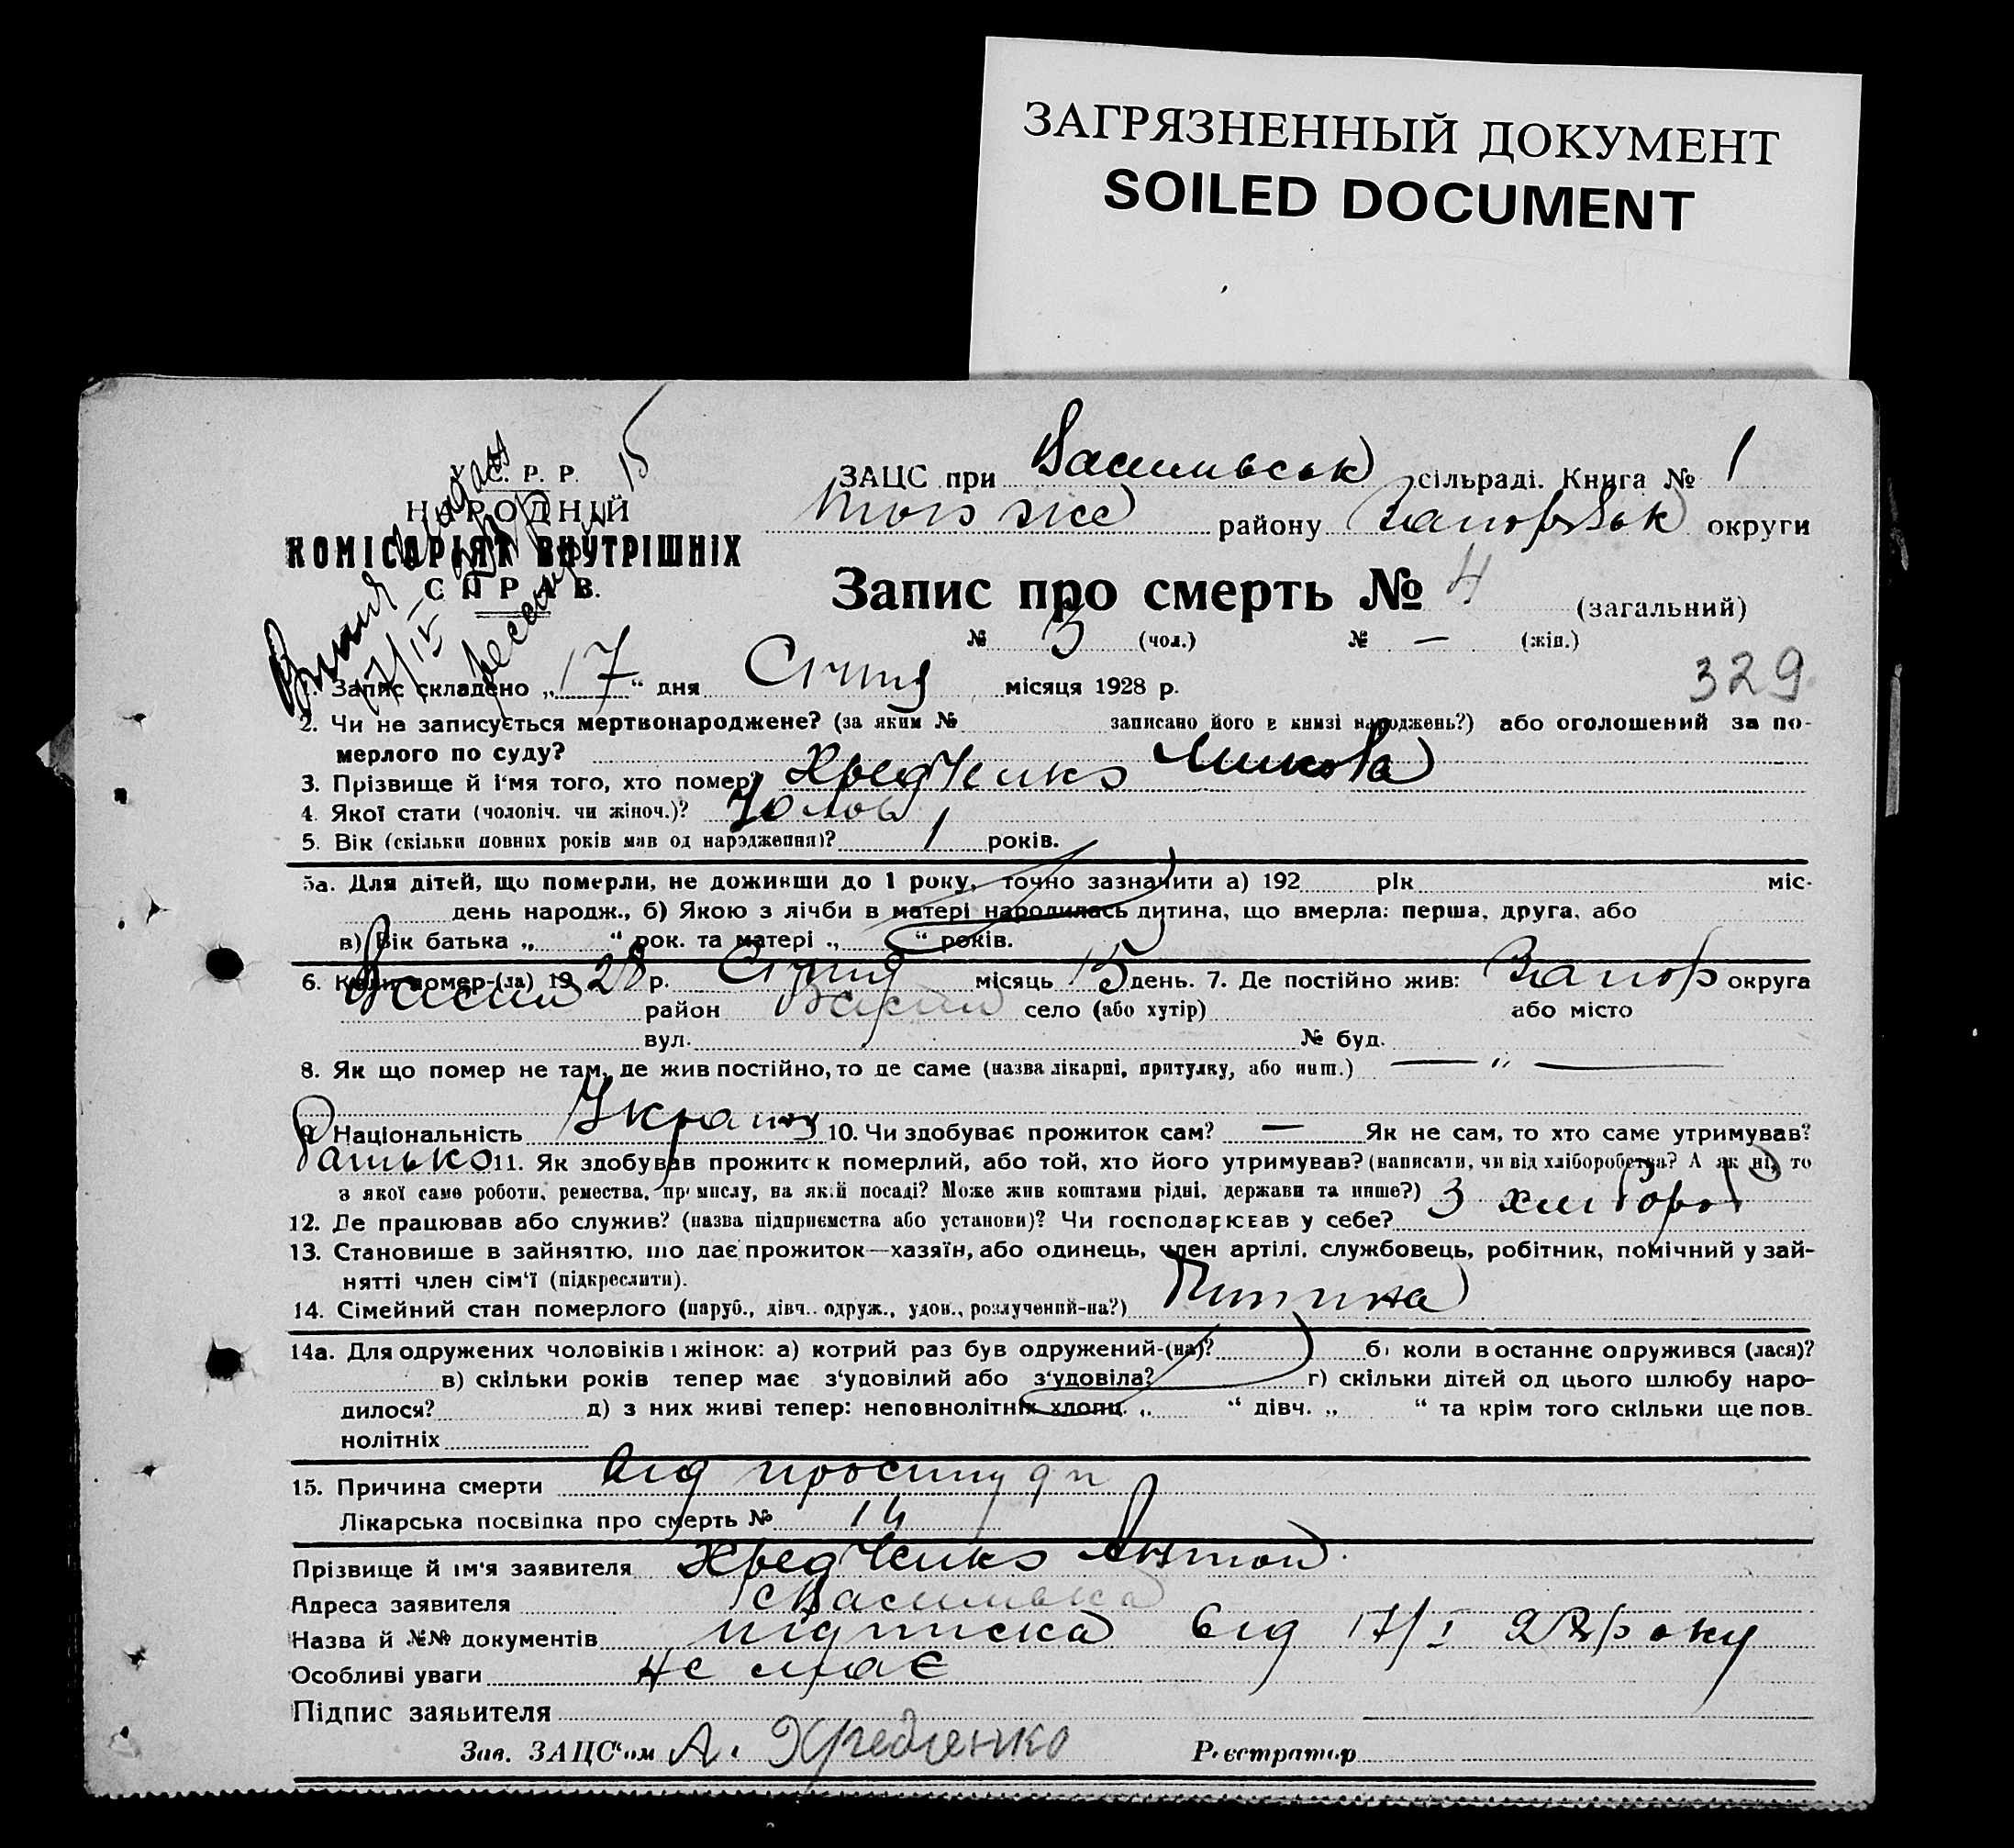 ЗАГРЯЗНЕННЫЙ ДОКУМЕНТ
SOILED DOCUMENT
С. Р. Р.
НАРОДНІЙ
КОМІСАРІЯТ ВНУТРІШНІХ
СПРАВ.
15
ЗАЦС при Васильвськ сільраді. Книга № 1
району Запорізьк округи
Запис про смерть № 4 (загальний)
№ 3 (чол.) № — (жін.)
329
1. Запис складено „17“ дня Січня місяця 1928 р.
2. Чи не записується мертвонароджене? (за яким № записано його в книзі народжень?) або оголошений за по-
мерлого по суду?
3. Прізвище й і‘мя того, хто помер? Хредченко Микола
4. Якої стати (чоловіч. чи жіноч.)? Чолов
5. Вік (скільки повних років мав од народження)? 1 років.
5а. Для дітей, що померли, не доживши до 1 року, точно зазначити а) 192 рік міс.
день народж., б) Якою з лічби в матері народилась дитина, що вмерла: перша, друга, або
в) Вік батька „ “ рок. та матері „ “ років.
6. Коли помер-(ла) 1928 р. Січня місяць 15 день. 7. Де постійно жив: Запор округа
Васил район Васил село (або хутір) або місто
вул. № буд.
8. Як що помер не там, де жив постійно, то де саме (назва лікарні, притулку, або инш.) — „ —
9. Національність Україн 10. Чи здобуває прожиток сам? — Як не сам, то хто саме утримував?
Батько 11. Як здобував прожиток померлий, або той, хто його утримував? (написати, чи від хліборобства? А як ні, то
з якої саме роботи, ремества, промислу, на якій посаді? Може жив коштами рідні, держави та инше?) З хлібороб
12. Де працював або служив? (назва підприємства або установи)? Чи господарював у себе?
13. Становище в зайняттю, що дає прожиток—хазяїн, або одинець, член артілі, службовець, робітник, помічний у зай-
нятті член сім‘ї (підкреслити).
14. Сімейний стан померлого (паруб., дівч.. одруж., удов., розлучений-на?) Дитина
14а. Для одружених чоловіків і жінок: а) котрий раз був одружений-(на)? б) коли востаннє одружився (лася)?
в) скільки років тепер має з‘удовілий або з‘удовіла? г) скільки дітей од цього шлюбу наро-
дилося? д) з них живі тепер: неповнолітніх хлопц. „ “ дівч. „ “ та крім того скільки ще пов.
нолітніх
15. Причина смерти від простуди
Лікарська посвідка про смерть № 14
Прізвище й ім‘я заявителя Хредченко Антон.
Адреса заявителя с Василівка
Назва й №№ документів підписка від 17/I 28 року
Особливі уваги не має
Підпис заявителя
Зав. ЗАЦС‘ом А. Хредченко Реєстратор